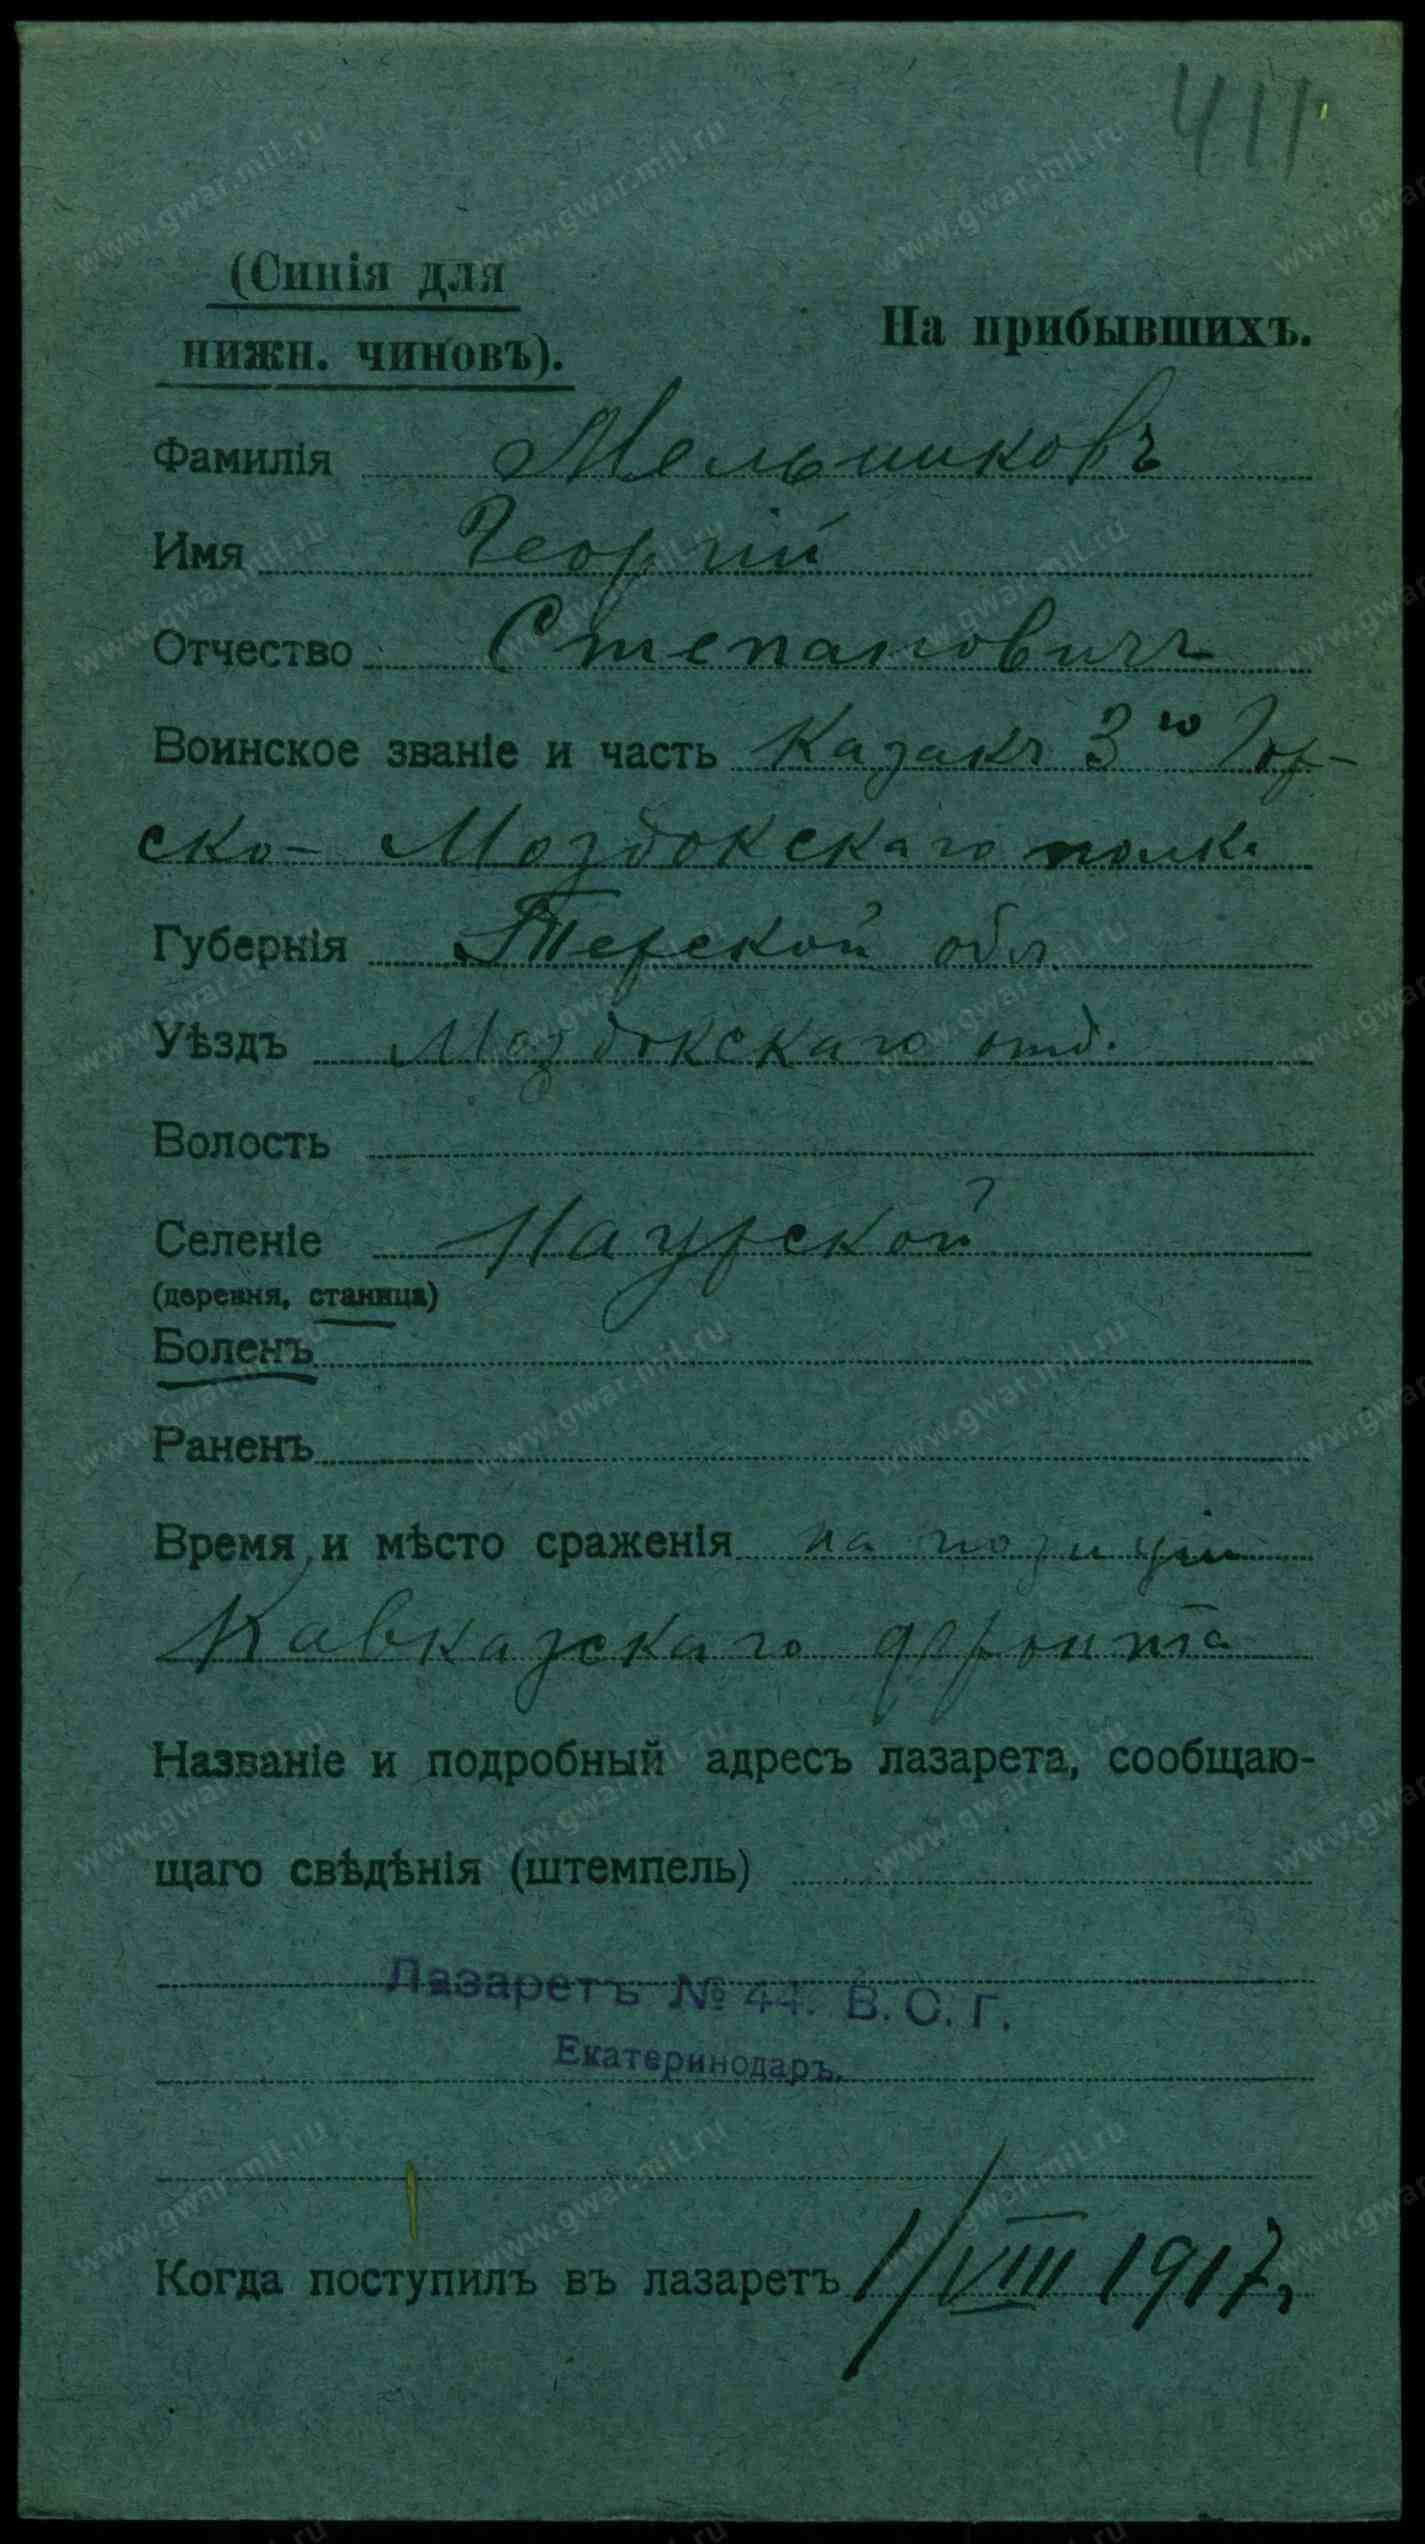 411
(Синія для
нижн. чиновъ).
На прибывшихъ.
Фамилія Мельниковъ
Имя Георгій
Отчество Степановичъ
Воинское званіе и часть Казакъ 3го Гор-
ско- Моздокскаго полка
Губернія Терской обл.
Уѣздъ Моздокскаго отд.
Волость
Селеніе Наурской
(деревня, станица)
Боленъ
Раненъ
Время и мѣсто сраженія на позиціи
Кавказскаго фронта
Названіе и подробный адресъ лазарета, сообщаю-
щаго свѣдѣнія (штемпель)
Лазаретъ № 44. В. С. Г.
Екатеринодаръ.
Когда поступилъ въ лазаретъ 1/VIII 1917г
www.gwar.mil.ru